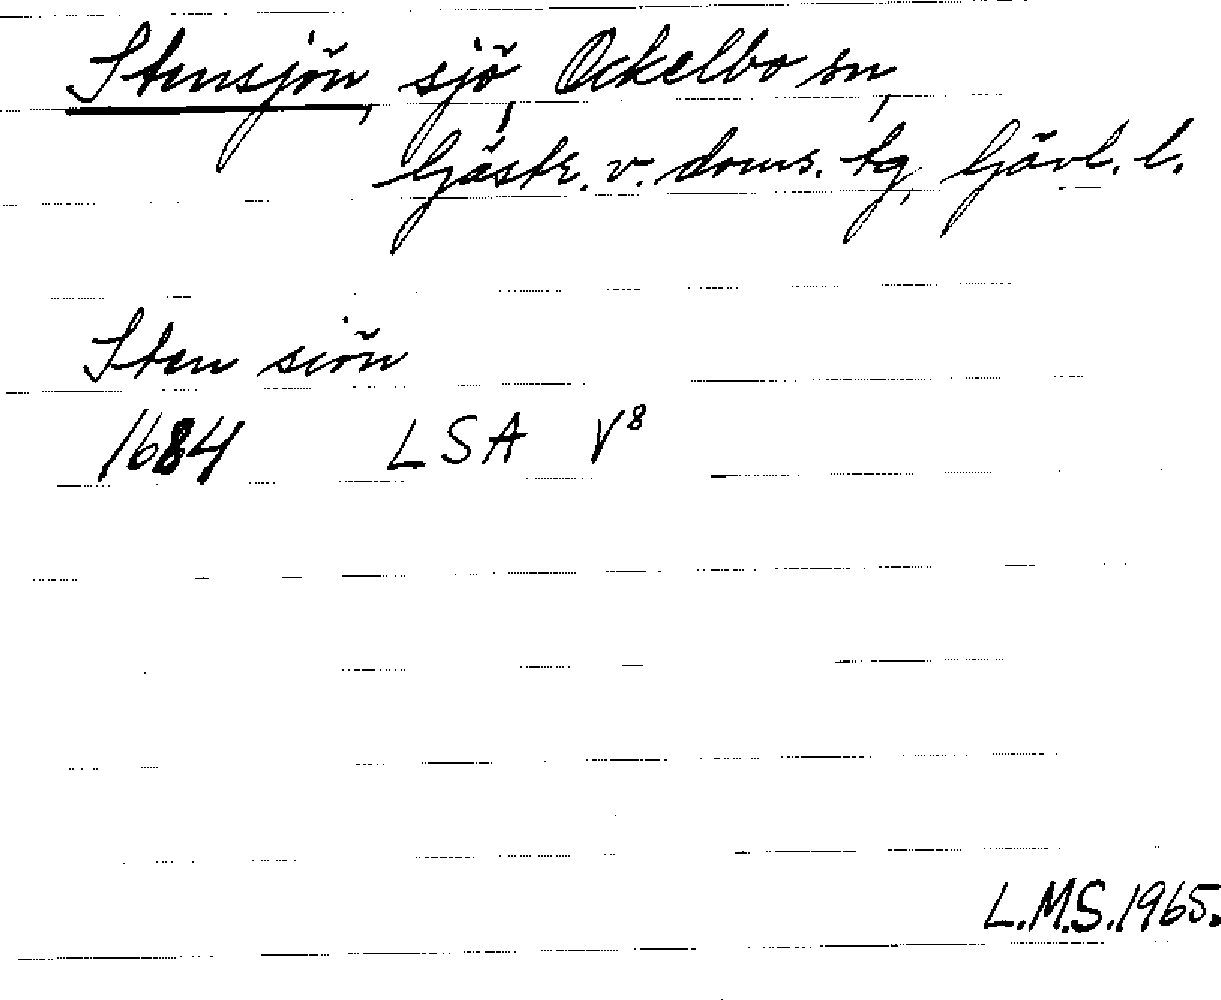 Stensjön, sjö, Ockelbo sn,
Gästr. v. doms. tg, Gävl. l.
Sten siön
1684 LSA V⁸
L.M.S. 1965.